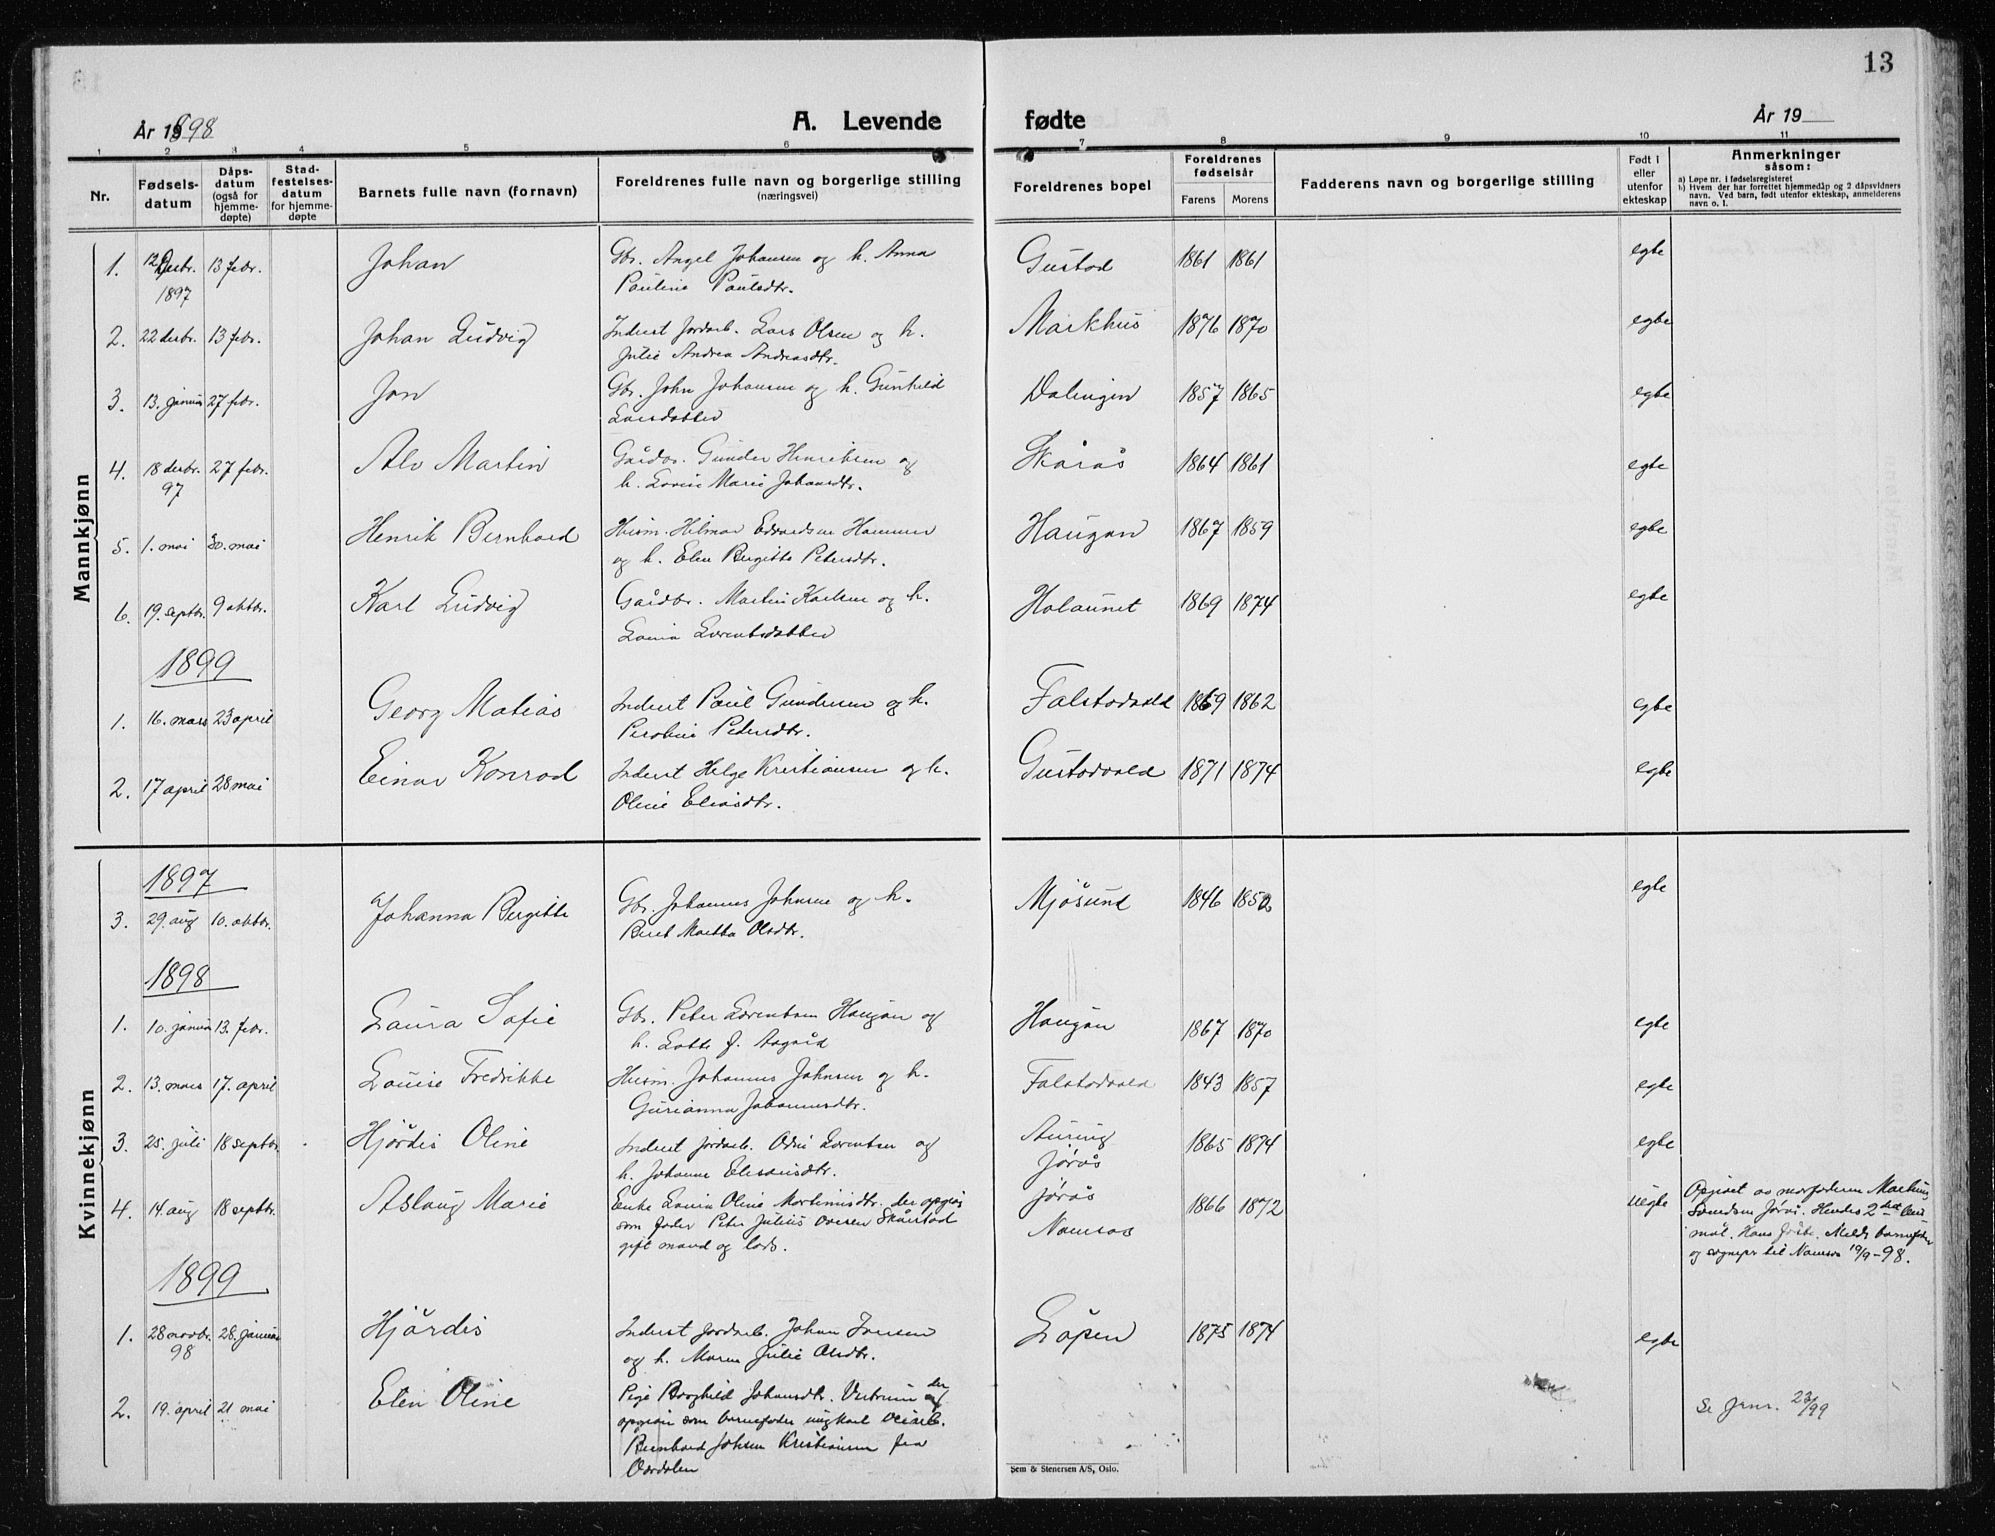 13
År 1898 A. Levende fødte År 19
1 2 3 4 5 6 7 8 9 10 11
Nr. Fødsels-datum Dåps-datum (også for hjemme-døpte) Stad-festelses-datum for hjemme-døpte Barnets fulle navn (fornavn) Foreldrenes fulle navn og borgerlige stilling (næringsvei) Foreldrenes bopel Foreldrenes fødselsår Farens Morens Fadderens navn og borgerlige stilling Født i eller utenfor ekteskap Anmerkninger såsom:
a) Løpe nr. i fødselsregisteret
b) Hvem der har forrettet hjemmedåp og 2 dåpsvidners navn. Ved barn, født utenfor ekteskap, anmelderens navn o. l.
Mannkjønn
1. 12 desbr. 13 febr. Johan Gbr. Angel Johansen og h. Anna Gustad 1861 1861 egte
1897 Pauline Paulsdtr.
2. 22 desbr. 13 febr. Johan Ludvig Inderst jordarb. Lars Olsen og h. Markhus 1876 1870 egte
Julie Andrea Andreasdtr.
3. 13. januar 27 febr. Jon Gbr. John Johansen og h. Gunhild Dalingen 1857 1865 egte
Larsdatter
4. 18 desbr. 27 febr. Alv Martin Gårdbr. Gunder Henriksen og Skårås 1864 1861 egte
97 h. Lovise Marie Johansdtr.
5. 1. mai 30. mai Henrik Bernhard Husm. Hilmar Edvardsen Hammer Haugan 1867 1859 egte
og h. Elen Bergitte Petersdtr.
6. 19. septbr. 9 oktbr. Karl Ludvig Gårdbr. Martin Karlsen og h. Holaunet 1869 1874 egte
Laura Lorentsdatter
1899
1. 16. mars 23 april Georg Matias Inderst Paul Gundersen og h. Falstadvald 1869 1862 egte
Petersdtr.
2. 17 april 28 mai Einar Konrad Inderst Helge Kristiansen og h. Gustadvald 1871 1874 egte
Oline Eliasdtr.
Kvinnekjønn
1897
3. 29. aug 10. oktbr. Johanna Bergitte Gbr. Johannes Johnsen og h. Mjøsund 1846 1852 egte
Beret Martha Olsdtr.
1898
1. 10. januar 13. febr. Laura Sofie Gbr. Peter Lorentsen Haugan og Haugan 1867 1870 egte
h. Lotte f. Aagård
2. 13. mars 17. april Louise Fredrikke Husm. Johannes Johnsen og h. Falstadvald 1843 1857 egte
Gurianna Johannesdtr.
3. 25. juli 18 septbr. Hjørdis Oline Inderst jordarb. Odin Lorentsen og 1865 1874 egte
h. Johanne Eliseusdtr. Jørås
4. 14. aug 18 septbr. Aslaug Marie Enke Laura Oline Martinusdtr. der opgav Jørås 1866 1872 uegte Opgivet av morfaderen Martinus
som fader Peter Julius Ovesen Skårstad Namsos Jørås. Hendes 2det leier-
gift mand og lods. mål. Hans
til Namsos 19/9-98.
1899
1. 28 novbr. 28. januar Hjørdis Inderst jordarb. Johan Jensen Løpen 1875 1874 egte
98 og h. Maren Julie Olsdtr.
2. 19. april 21 mai Elen Oline Pige Borghild Johansdtr. der Se Jrnr. 23/99
opgav som barnefader ungkarl
Bernhard Johsen Kristiansen fra
Værdalen
Sem & Stenersen A/S, Oslo.